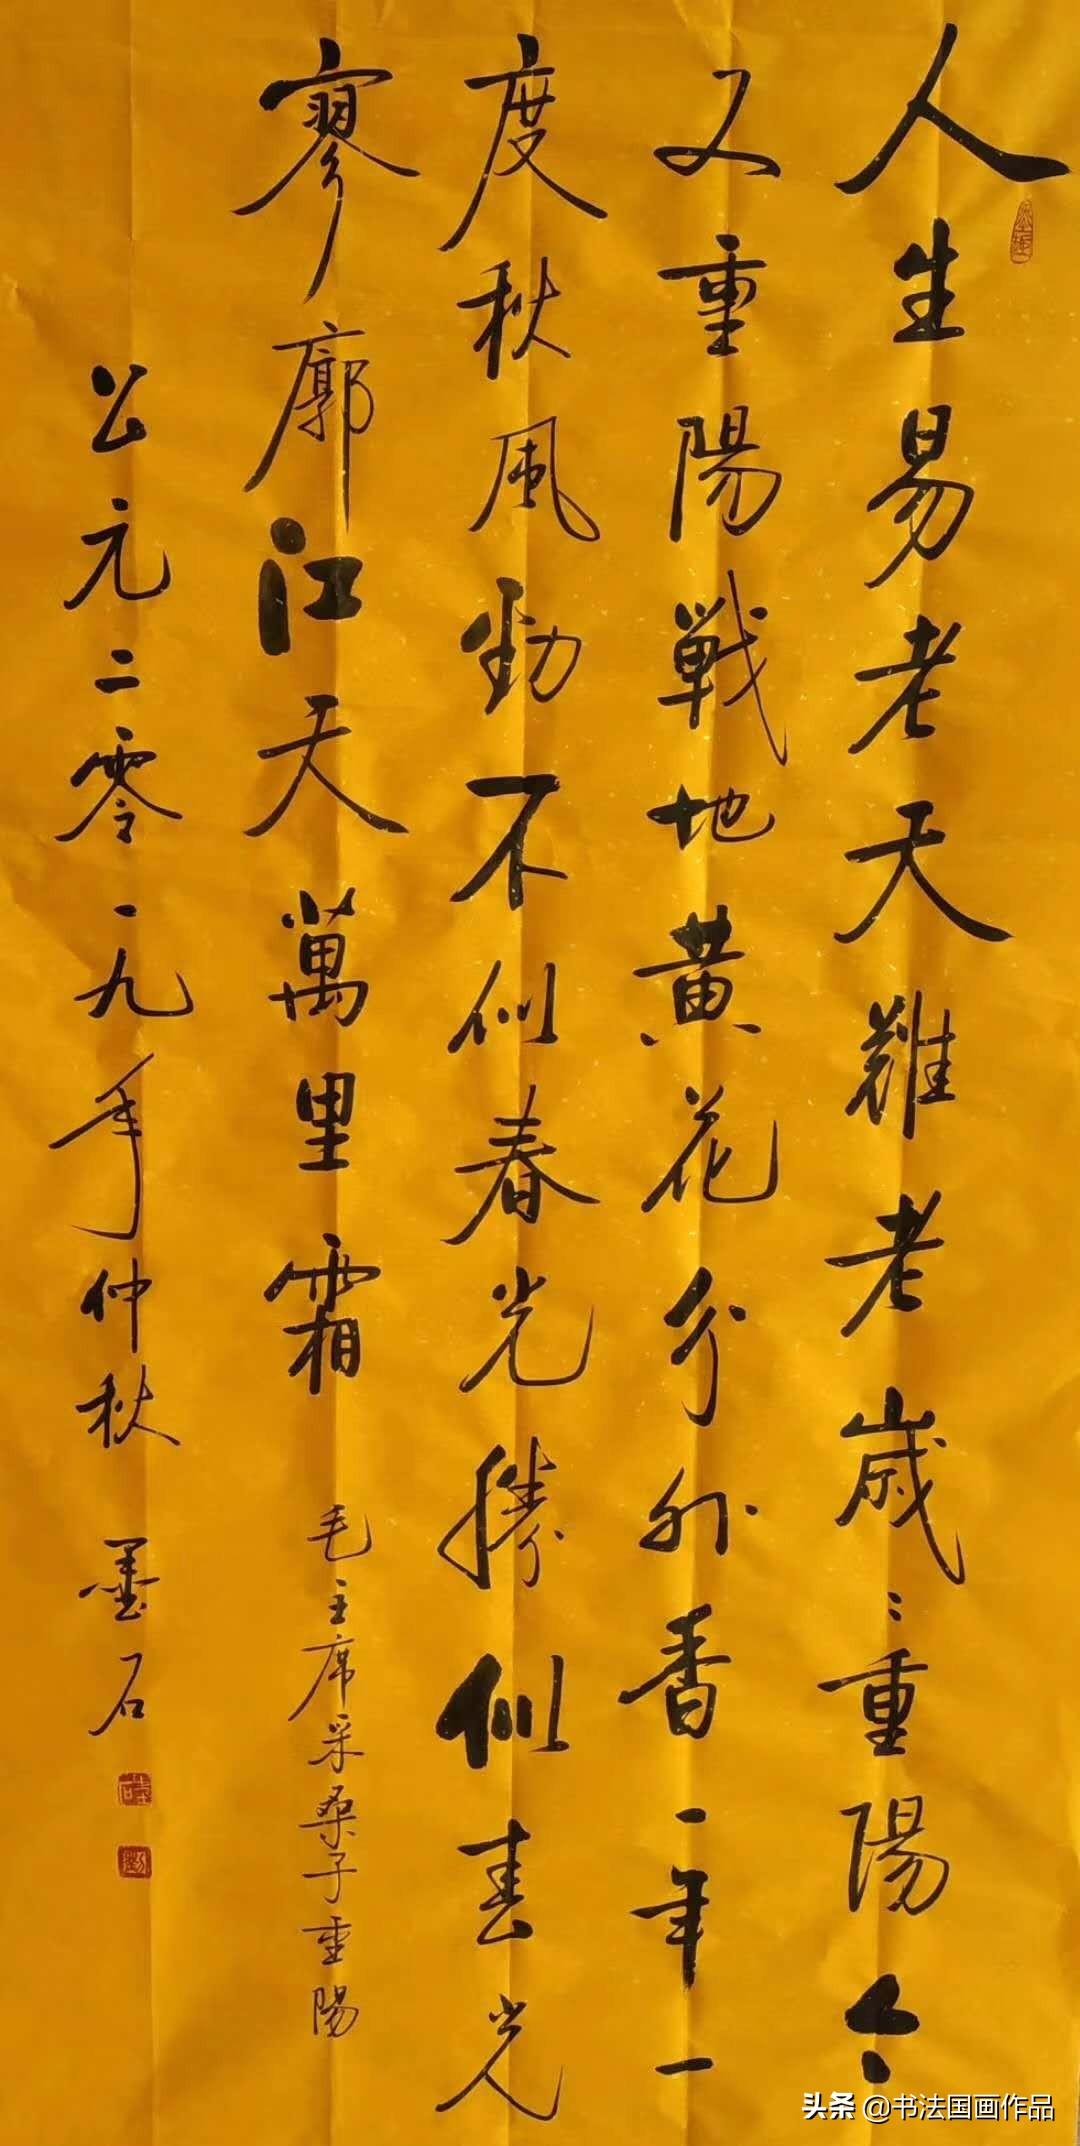 人生易老天難老歲〻重陽今
又重陽戰地黃花分外香一年一
度秋風勁不似春光勝似春光
寥廓江天萬里霜
毛主席采桑子重陽
公元二零一九年仲秋 墨石
头条 @书法国画作品